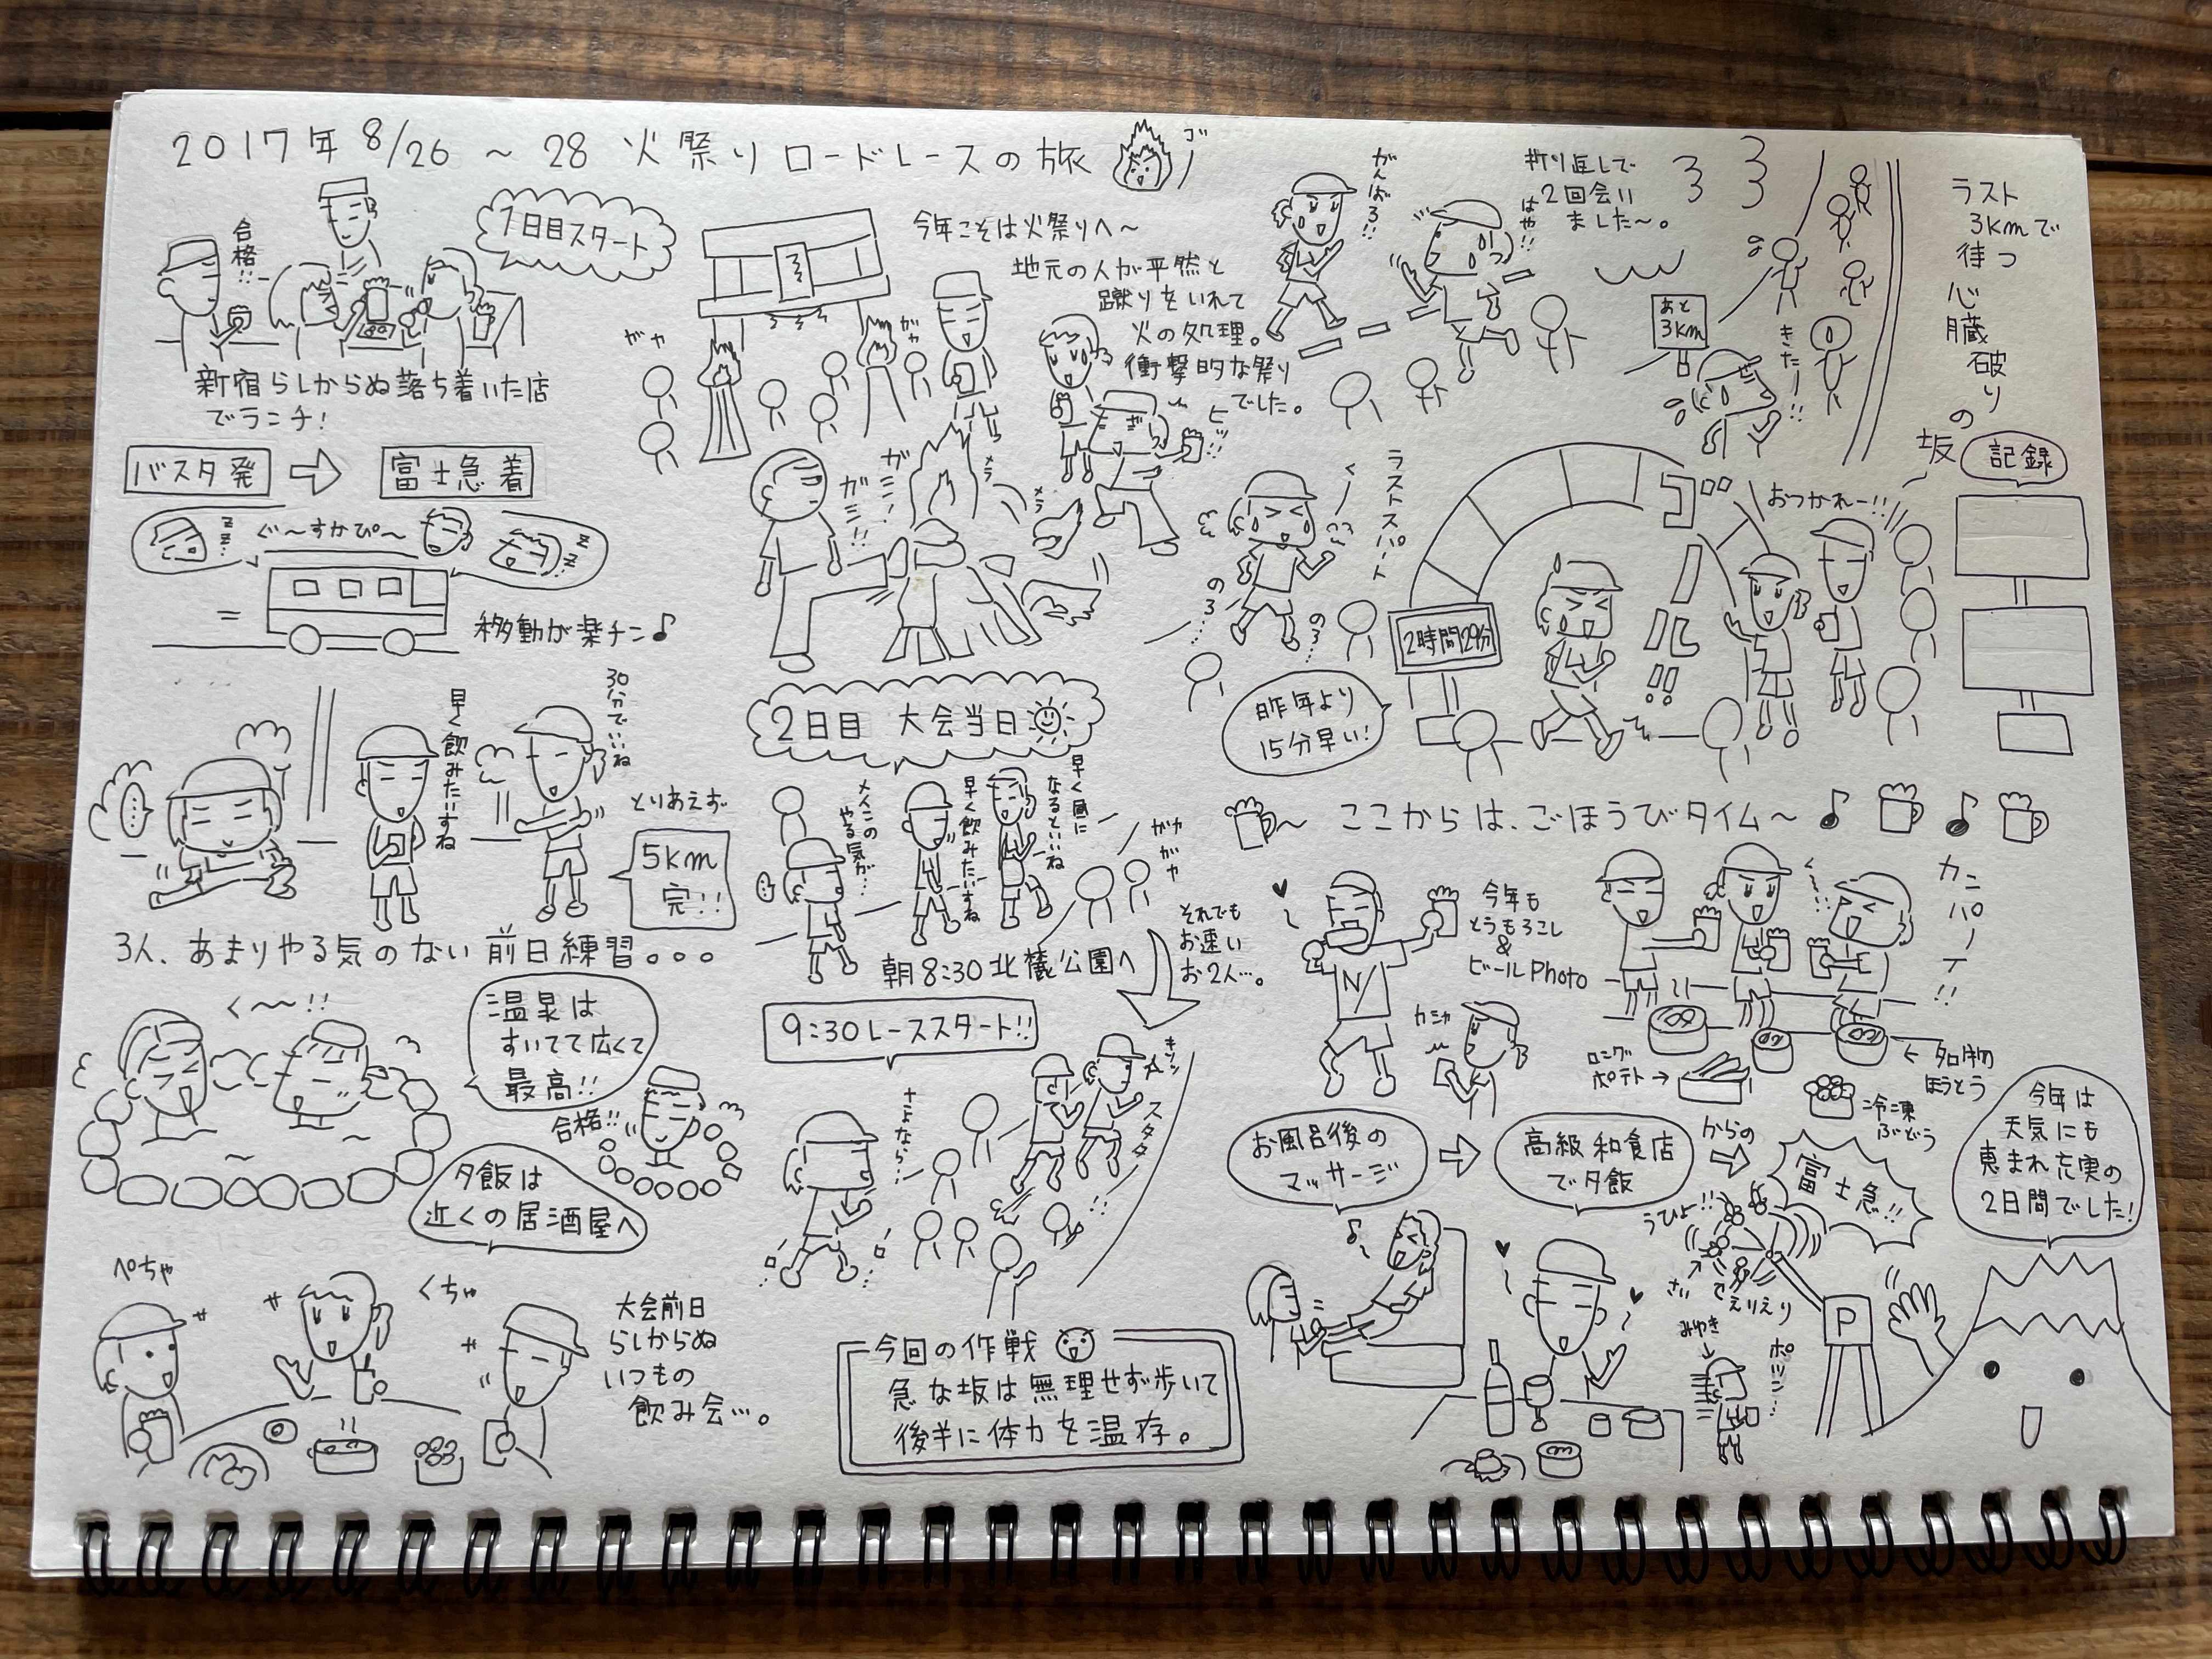 2017年 8/26 ~ 28 火祭りロードレースの旅
1日目スタート
合格!!
新宿らしからぬ落ち着いた店
でランチ!
バスタ発 ⇨ 富士急着
ぐ〜すかぴ〜
zz..
zz..
移動が楽チン♪
早く飲みたいすね
30分でいいね
とりあえず
5km
完!!
3人、あまりやる気のない前日練習。。。
く〜〜!!
温泉は
すいてて広くて
最高!!
合格!!
夕飯は
近くの居酒屋へ
ぺちゃ
くちゃ
大会前日
らしからぬ
いつもの
飲み会…。
今年こそは火祭りへ〜
地元の人が平然と
蹴りをいれて
火の処理。
衝撃的な祭り
でした。
ガヤ
ガヤ
ヒッ!!
ガシ!
ガシ!!
メラ
メラ
2日目 大会当日
メイコのやる気が…
早く飲みたいすね
早く昼になるといいね
ガヤガヤ
朝8:30 北麓公園へ
それでも
お速い
お2人…。
9:30レーススタート!!
さよなら…
キリッ
スタタ
!!
今回の作戦
急な坂は無理せず歩いて
後半に体力を温存。
がんばろ!!
はや!!
折り返しで
2回会い
ました〜。
あと
3km
きたー!!
ラスト
3kmで
待つ
心臓破りの坂
ラストスパート
く〜
のろ…
のろ…
2時間29分
昨年より
15分早い!
ゴール!!
おつかれー!!
記録
〜 ここからは、ごほうびタイム〜 ♪ ♪
今年も
とうもろこし
&
ビールPhoto
N
カシャ
カンパーイ!!
く〜…
ロング
ポテト→
←名物
ほうとう
冷凍
ぶどう
お風呂後の
マッサージ
⇨
高級和食店
で夕飯
からの
⇨
富士急!!
うひょ!!
さい
えりえり
みゆき
ポツン…
P
今年は
天気にも
恵まれ充実の
2日間でした!